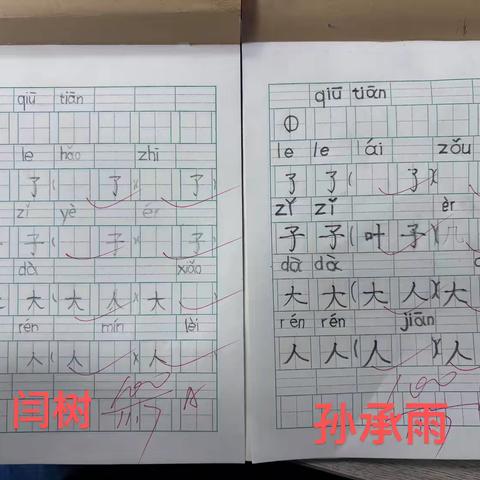 qiū tiān
le hǎo zhī
了 ( 了 )( 了
zǐ yè ér
子 ( 子 )( 子
dà xiǎo
大 大 ( 大 人 )( 大
rén mín lèi
人 ( 人 )( 人
100
11.7
A
闫树
qiū tiān
①
le le lái zǒu
了 了 ( 了 )(
zǐ zǐ èr
子 子 ( 叶 子 )( 几
dà dà
大 大 ( 大 人 )( 大
rén rén jiān
人 人 ( 人 )( 人
100
孙承雨